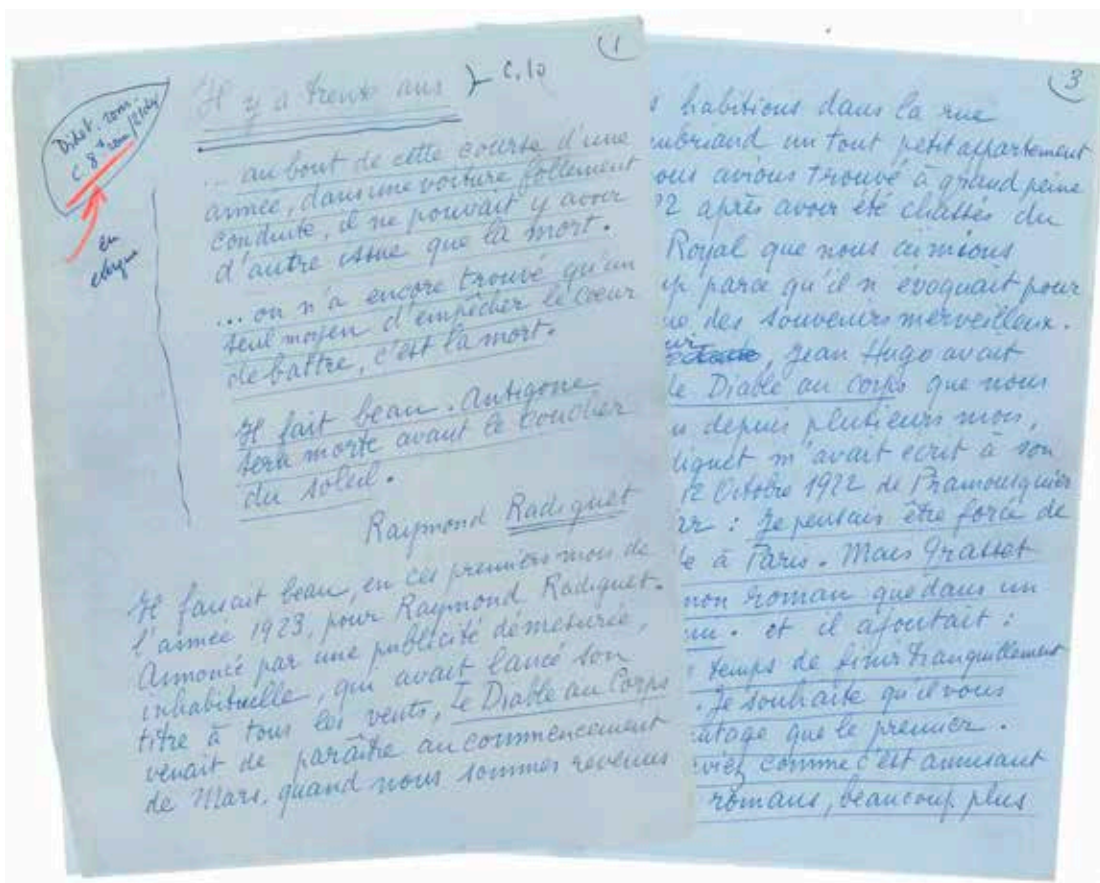 (1
Il y a trente ans } c. 10
Didot. rom.
c. 8
en
... au bout de cette course d'une
année, dans une voiture follement
conduite, il ne pouvait y avoir
d'autre issue que la mort.
... on n'a encore trouvé qu'un
seul moyen d'empêcher le cœur
de battre, c'est la mort.
Il fait beau. Antigone
sera morte avant le coucher
du soleil.
Raymond Radiguet
Il faisait beau, en ces premiers mois de
l'année 1923, pour Raymond Radiguet.
Annoncé par une publicité démesurée,
inhabituelle, qui avait lancé son
titre à tous les vents, Le Diable au Corps
venait de paraître au commencement
de Mars, quand nous sommes revenus
(3
s habitions dans la rue
ubriand un tout petit appartement
ous avions trouvé à grand peine
22 après avoir été chassés du
Royal que nous aimions
up parce qu'il n'évoquait pour
ue des souvenirs merveilleux.
, Jean Hugo avait
le Diable au corps que nous
s depuis plusieurs mois,
diguet m'avait écrit à son
12 Octobre 1922 de Pramousquier
ar : Je pensais être forcé de
e à Paris. Mais Grasset
mon roman que dans un
et il ajoutait :
temps de finir tranquillement
. Je souhaite qu'il vous
antage que le premier.
viez comme c'est amusant
romans, beaucoup plus